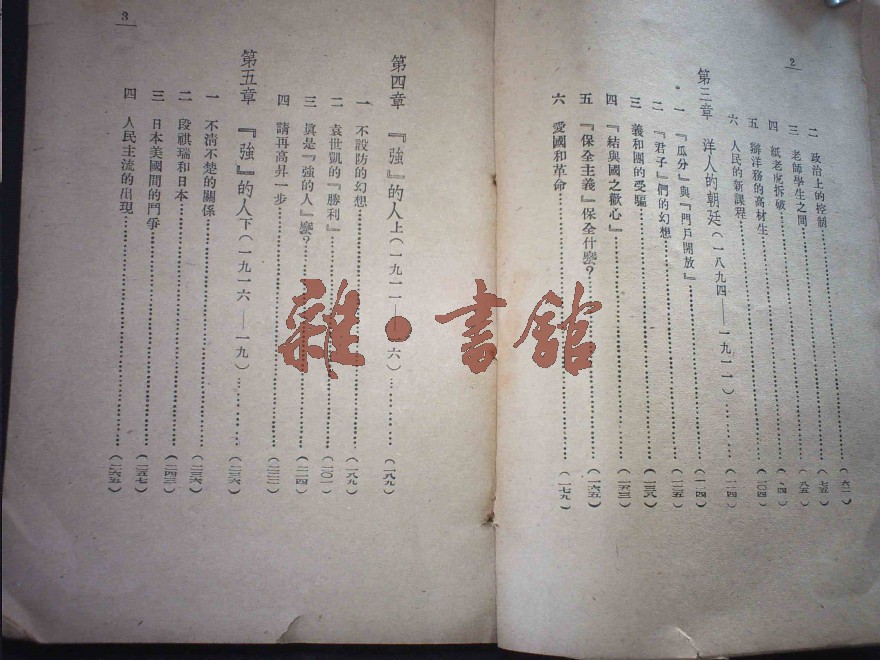 2
二 政治上的控制……（六一）
三 老師學生之間……（七五）
四 紙老虎拆破……（八五）
五 辦洋務的高材生……
六 人民的新課程……（一〇四）
第三章 洋人的朝廷（一八九四——一九一一）……（一一四）
一 『瓜分』與『門戶開放』……（一一四）
二 『君子』們的幻想……（一二五）
三 義和團的受騙……（一三八）
四 『結與國之歡心』……（一五三）
五 『保全主義』保全什麼？……（一六五）
六 愛國和革命……（一七九）
3
第四章 『強』的人上（一九一二——一六）……（一八九）
一 不設防的幻想……（一八九）
二 袁世凱的『勝利』……（二〇一）
三 眞是『強的人』麼？……（二一四）
四 請再高昇一步……
第五章 『強』的人下（一九一六——一九）……（二三六）
一 不清不楚的關係……（二三六）
二 段祺瑞和日本……（二四三）
三 日本美國間的鬥爭……（二五七）
四 人民主流的出現……（二六五）
雜·書館